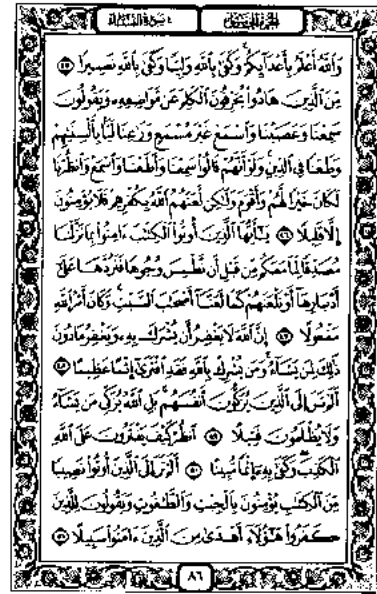 الجزء الخامس
٤ سورة النساء
وَاللَّهُ أَعْلَمُ بِأَعْدَائِكُمْ وَكَفَىٰ بِاللَّهِ وَلِيًّا وَكَفَىٰ بِاللَّهِ نَصِيرًا ٤٥
مِنَ الَّذِينَ هَادُوا يُحَرِّفُونَ الْكَلِمَ عَن مَّوَاضِعِهِ وَيَقُولُونَ
سَمِعْنَا وَعَصَيْنَا وَاسْمَعْ غَيْرَ مُسْمَعٍ وَرَاعِنَا لَيًّا بِأَلْسِنَتِهِمْ
وَطَعْنًا فِي الدِّينِ وَلَوْ أَنَّهُمْ قَالُوا سَمِعْنَا وَأَطَعْنَا وَاسْمَعْ وَانظُرْنَا
لَكَانَ خَيْرًا لَّهُمْ وَأَقْوَمَ وَلَٰكِن لَّعَنَهُمُ اللَّهُ بِكُفْرِهِمْ فَلَا يُؤْمِنُونَ
إِلَّا قَلِيلًا ٤٦ يَا أَيُّهَا الَّذِينَ أُوتُوا الْكِتَابَ آمِنُوا بِمَا نَزَّلْنَا
مُصَدِّقًا لِّمَا مَعَكُم مِّن قَبْلِ أَن نَّطْمِسَ وُجُوهًا فَنَرُدَّهَا عَلَىٰ
أَدْبَارِهَا أَوْ نَلْعَنَهُمْ كَمَا لَعَنَّا أَصْحَابَ السَّبْتِ وَكَانَ أَمْرُ اللَّهِ
مَفْعُولًا ٤٧ إِنَّ اللَّهَ لَا يَغْفِرُ أَن يُشْرَكَ بِهِ وَيَغْفِرُ مَا دُونَ
ذَٰلِكَ لِمَن يَشَاءُ وَمَن يُشْرِكْ بِاللَّهِ فَقَدِ افْتَرَىٰ إِثْمًا عَظِيمًا ٤٨
أَلَمْ تَرَ إِلَى الَّذِينَ يُزَكُّونَ أَنفُسَهُم بَلِ اللَّهُ يُزَكِّي مَن يَشَاءُ
وَلَا يُظْلَمُونَ فَتِيلًا ٤٩ انظُرْ كَيْفَ يَفْتَرُونَ عَلَى اللَّهِ
الْكَذِبَ وَكَفَىٰ بِهِ إِثْمًا مُّبِينًا ٥٠ أَلَمْ تَرَ إِلَى الَّذِينَ أُوتُوا نَصِيبًا
مِّنَ الْكِتَابِ يُؤْمِنُونَ بِالْجِبْتِ وَالطَّاغُوتِ وَيَقُولُونَ لِلَّذِينَ
كَفَرُوا هَٰؤُلَاءِ أَهْدَىٰ مِنَ الَّذِينَ آمَنُوا سَبِيلًا ٥١
٨٦